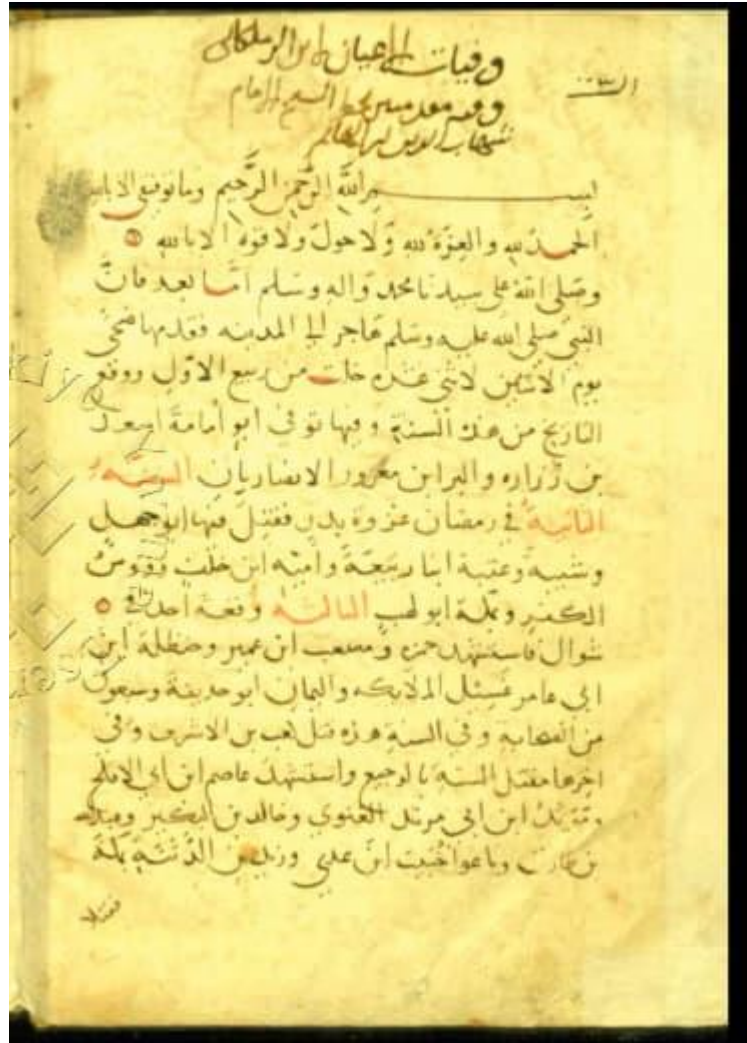 وفيات الاعيان لابن الزملكاني
وفيه معدمتين بخط الشيخ الامام
شهاب الدين
بسم الله الرحمن الرحيم وما توفيقي الا بالله
الحمد لله والعزة لله ولا حول ولا قوة الا بالله
وصلى الله على سيدنا محمد واله وسلم اما بعد فان
النبي صلى الله عليه وسلم هاجر الى المدينه فقدمها ضحى
يوم الاثنين لاثني عشره خلت من ربيع الاول ووقع
التاريخ من هذه السنة وفيها توفي ابو امامة اسعد
بن زراره والبرا بن معرور الانصاريان السنه
الثانية في رمضان غزوة بدر فقتل فيها ابو جهل
وشيبة وعتبة ابنا ربيعة وامية ابن خلف ورؤس
الكفر وبمكة ابو لهب الثالثه وقعة احد في
شوال فاستشهد حمزه ومصعب ابن عمير وحنظلة ابن
ابي عامر غسيل الملايكه واليمان ابو حذيفة وسبعون
من الصحابه وفي السنة هذه قتل كعب بن الاشرف وفي
اخرها مقتل الستة بالرجيع واستشهد عاصم ابن ابي الافلح
ومرثد ابن ابي مرثد الغنوي وخالد بن البكير وعبدالله
بن طارق وباعوا خبيب ابن عدي وزيد بن الدثنة بمكة
فقتلا